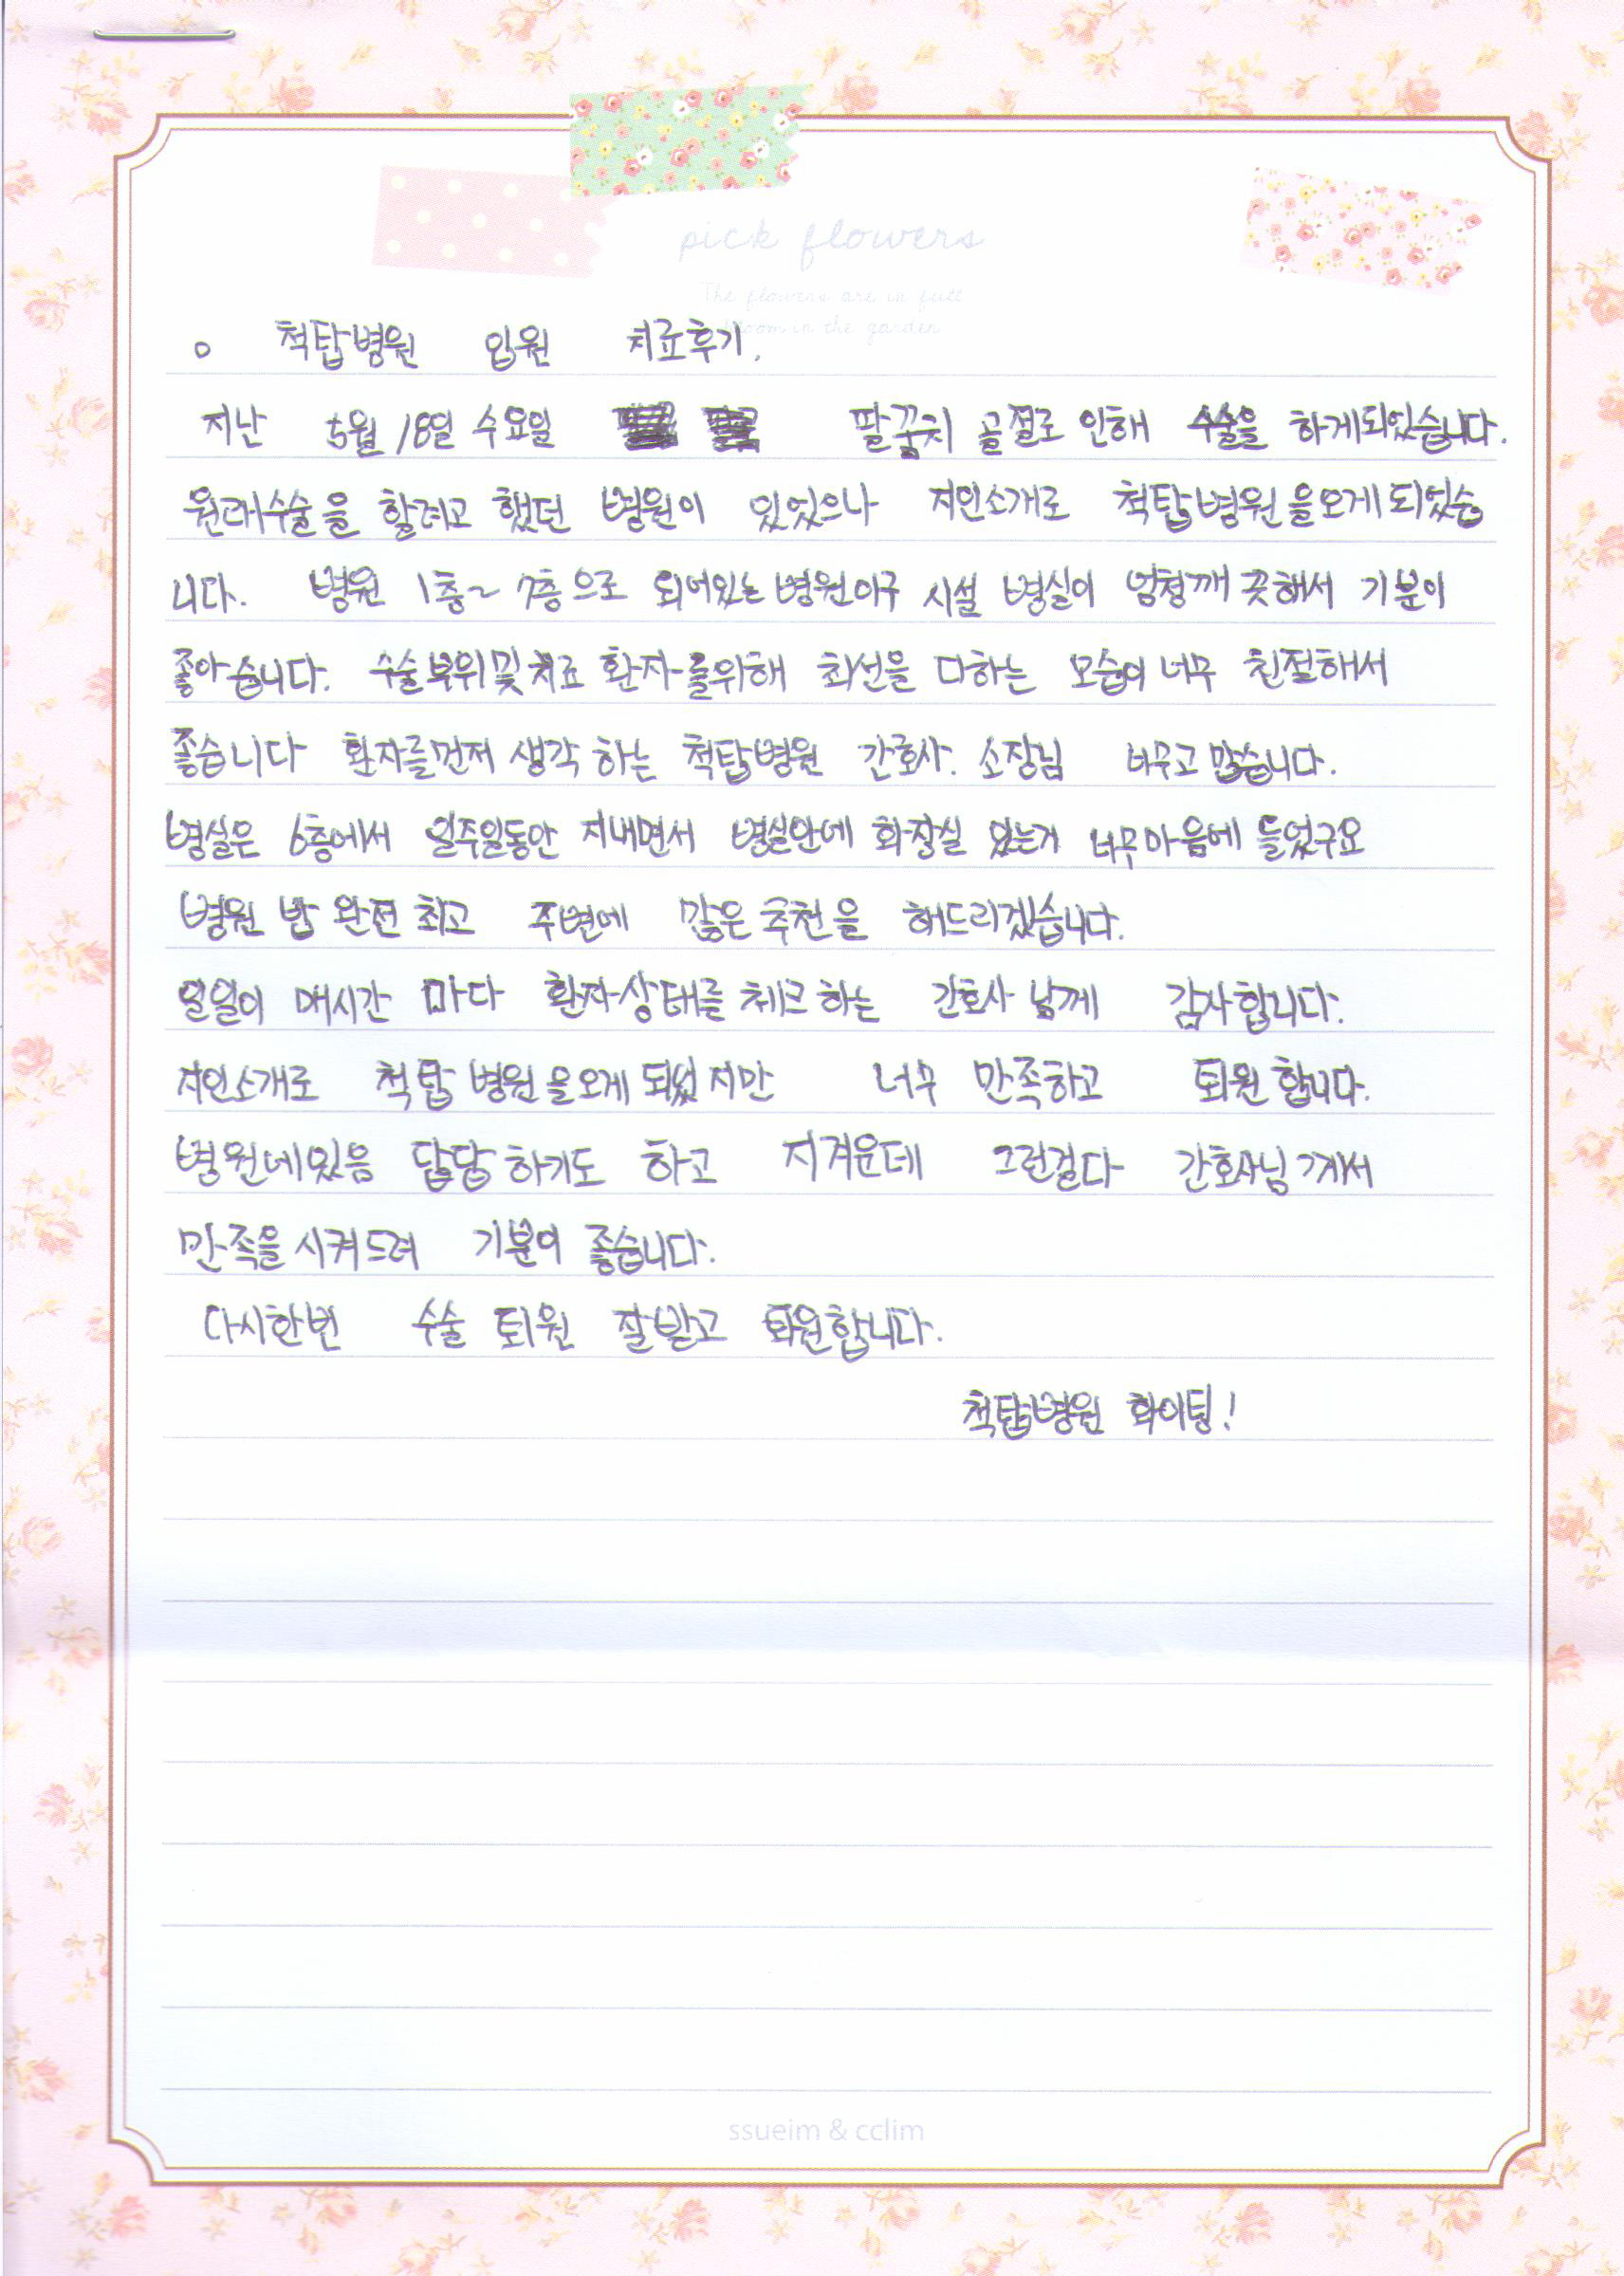 pick flowers
The flowers are in full
bloom in the garden
o 척탑병원 입원 치료후기.
지난 5월 18일 수요일 팔꿈치 골절로 인해 수술을 하게되었습니다.
원래수술을 할려고 했던 병원이 있었으나 지인소개로 척탑병원을오게되었습
니다. 병원 1층~7층으로 되어있는 병원이구 시설 병실이 엄청깨끗해서 기분이
좋아습니다. 수술부위및치료 환자를위해 최선을 다하는 모습이 너무 친절해서
좋습니다 환자를먼저 생각 하는 척탑병원 간호사. 소장님 너무고맙습니다.
병실은 6층에서 일주일동안 지내면서 병실안에 화장실 있는거 너무마음에 들었구요
병원 밥 완전 최고 주변에 많은 추천을 해드리겠습니다.
일일이 매시간 마다 환자상태를 체크 하는 간호사 님께 감사합니다.
지인소개로 척탑 병원을오게 되었지만 너무 만족하고 퇴원 합니다.
병원에있음 답답 하기도 하고 지겨운데 그런걸다 간호사님께서
만족을시켜드려 기분이 좋습니다.
다시한번 수술 퇴원 잘받고 퇴원합니다.
척탑병원 화이팅!
ssueim & cclim